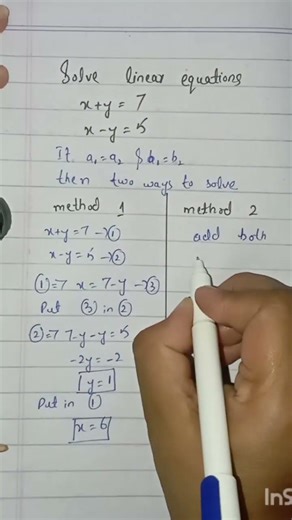 Solve linear equations
x+y = 7
x-y = 5
If a₁=a₂ & b₁=b₂
then two ways to solve
method 1
x+y=7 →①
x-y=5 →②
①⇒ x=7-y →③
Put ③ in ②
②⇒ 7-y-y=5
-2y=-2
y=1
Put in ①
x=6
method 2
add both
InS